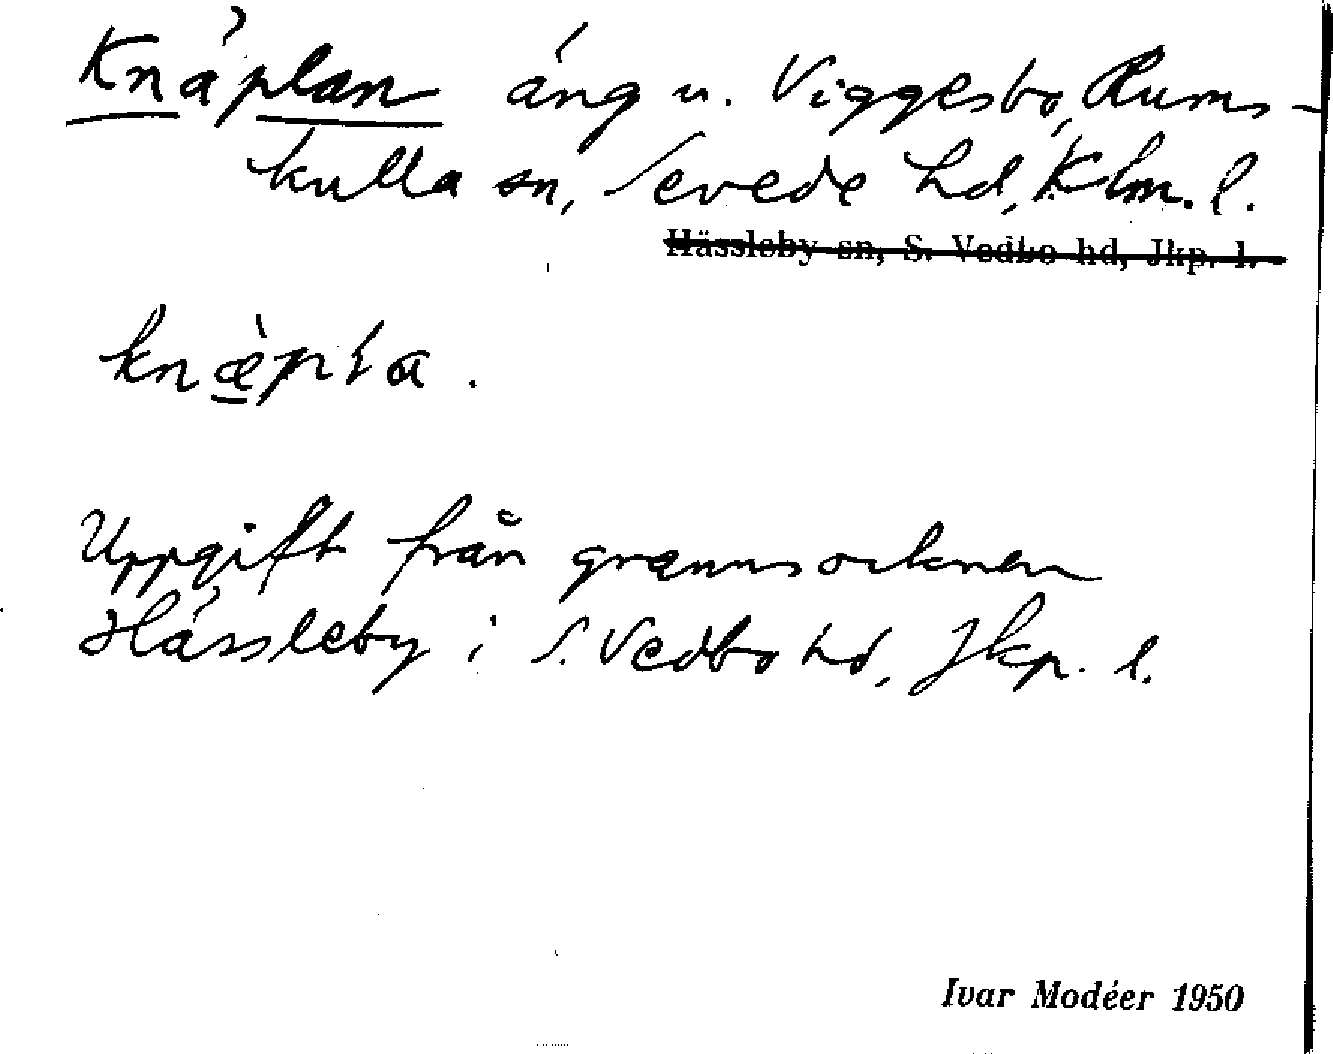 Knäplan äng u. Viggesbo, Rums-
kulla sn, Sevede hd, Klm. l.
Hässleby sn, S. Vedbo hd, Jkp. l.
knæ̀pla.
Uppgift från grannsocknen
Hässleby i S. Vedbo hd, Jkp. l.
Ivar Modéer 1950